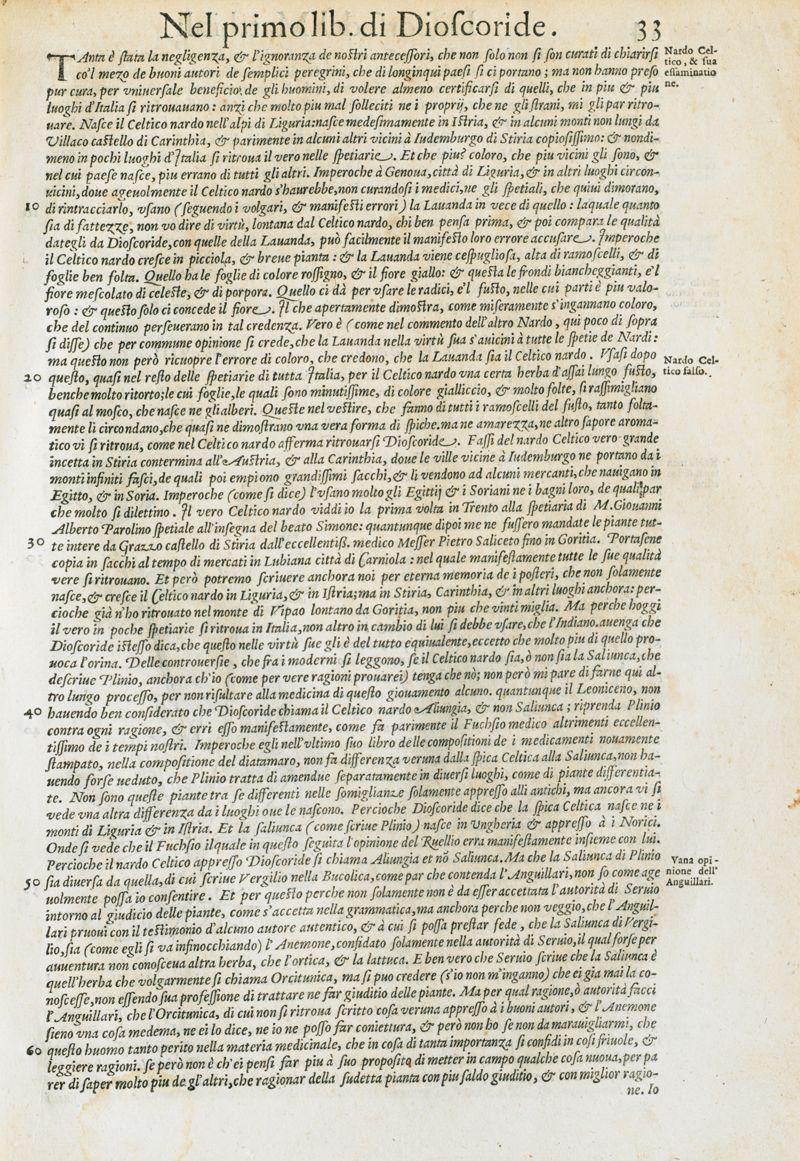 Nel primo lib. di Dioſcoride. 33
TAnta è ſtata la negligenza, & l'ignoranza de noſtri anteceſſori, che non ſolo non ſi ſon curati di chiarirſi
co'l mezo de buoni autori de ſemplici peregrini, che di longinqui paeſi ſi ci portano; ma non hanno preſo
pur cura, per vniuerſale beneficio de gli huomini, di volere almeno certificarſi di quelli, che in piu & piu
luoghi d'Italia ſi ritrouauano: anzi che molto piu mal ſolleciti ne i proprij, che ne gli ſtrani, mi gli par ritro-
uare. Naſce il Celtico nardo nell'alpi di Liguria: naſce medeſimamente in Iſtria, & in alcuni monti non lungi da
Villaco caſtello di Carinthia, & parimente in alcuni altri vicini à Iudemburgo di Stiria copioſiſſimo: & nondi-
meno in pochi luoghi d'Italia ſi ritroua il vero nelle ſpetiarie. Et che piu? coloro, che piu vicini gli ſono, &
nel cui paeſe naſce, piu errano di tutti gli altri. Imperoche à Genoua, città di Liguria, & in altri luoghi circon-
uicini, doue ageuolmente il Celtico nardo s'haurebbe, non curandoſi i medici, ne gli ſpetiali, che quiui dimorano,
10 di rintracciarlo, vſano (ſeguendo i volgari, & manifeſti errori) la Lauanda in vece di quello: laquale quanto
ſia di fattezze, non vo dire di virtù, lontana dal Celtico nardo, chi ben penſa prima, & poi compara le qualità
dategli da Dioſcoride, con quelle della Lauanda, può facilmente il manifeſto loro errore accuſare. Imperoche
il Celtico nardo creſce in picciola, & breue pianta: & la Lauanda viene ceſpuglioſa, alta di ramoſcelli, & di
foglie ben folta. Quello ha le foglie di colore roſſigno, & il fiore giallo: & queſta le frondi biancheggianti, e'l
fiore meſcolato di celeſte, & di porpora. Quello ci dà per vſare le radici, e'l fuſto, nelle cui parti è piu valo-
roſo: & queſto ſolo ci concede il fiore. Il che apertamente dimoſtra, come miſeramente s'ingannano coloro,
che del continuo perſeuerano in tal credenza. Vero è (come nel commento dell'altro Nardo, qui poco di ſopra
ſi diſſe) che per commune opinione ſi crede, che la Lauanda nella virtù ſua s'auicini à tutte le ſpetie de Nardi:
ma queſto non però ricuopre l'errore di coloro, che credono, che la Lauanda ſia il Celtico nardo. Vſaſi dopo
20 queſto, quaſi nel reſto delle ſpetiarie di tutta Italia, per il Celtico nardo vna certa herba d'aſſai lungo fuſto,
benche molto ritorto; le cui foglie, le quali ſono minutiſſime, di colore gialliccio, & molto folte, ſi raſſimigliano
quaſi al moſco, che naſce ne gli alberi. Queſte nel veſtire, che fanno di tutti i ramoſcelli del fuſto, tanto folta-
mente li circondano, che quaſi ne dimoſtrano vna vera forma di ſpiche. ma ne amarezza, ne altro ſapore aroma-
tico vi ſi ritroua, come nel Celtico nardo afferma ritrouarſi Dioſcoride. Faſſi del nardo Celtico vero grande
incetta in Stiria contermina all'Auſtria, & alla Carinthia, doue le ville vicine à Iudemburgo ne portano da i
monti infiniti faſci, de quali poi empiono grandiſſimi ſacchi, & li vendono ad alcuni mercanti, che nauigano in
Egitto, & in Soria. Imperoche (come ſi dice) l'vſano molto gli Egittij & i Soriani ne i bagni loro, de quali par
che molto ſi dilettino. Il vero Celtico nardo viddi io la prima volta in Trento alla ſpetiaria di M. Giouanni
Alberto Parolino ſpetiale all'inſegna del beato Simone: quantunque dipoi me ne fuſſero mandate le piante tut-
30 te intere da Grazzo caſtello di Stiria dall'eccellentiſſ. medico Meſſer Pietro Saliceto fino in Goritia. Portaſene
copia in ſacchi al tempo di mercati in Lubiana città di Carniola: nel quale manifeſtamente tutte le ſue qualità
vere ſi ritrouano. Et però potremo ſcriuere anchora noi per eterna memoria de i poſteri, che non ſolamente
naſce, & creſce il Celtico nardo in Liguria, & in Iſtria; ma in Stiria, Carinthia, & in altri luoghi anchora: per-
cioche già n'ho ritrouato nel monte di Vipao lontano da Goritia, non piu che vinti miglia. Ma perche hoggi
il vero in poche ſpetiarie ſi ritroua in Italia, non altro in cambio di lui ſi debbe vſare, che l'Indiano. auenga che
Dioſcoride iſteſſo dica, che queſto nelle virtù ſue gli è del tutto equiualente, eccetto che molto piu di quello pro-
uoca l'orina. Delle controuerſie, che fra i moderni ſi leggono, ſe il Celtico nardo ſia, ò non ſia la Saliunca, che
deſcriue Plinio, anchora ch'io (come per vere ragioni prouarei) tenga che nò; non però mi pare di farne qui al-
tro lungo proceſſo, per non riſultare alla medicina di queſto giouamento alcuno. quantunque il Leoniceno, non
40 hauendo ben conſiderato che Dioſcoride chiama il Celtico nardo Aliungia, & non Saliunca; riprenda Plinio
contra ogni ragione, & erri eſſo manifeſtamente, come fa parimente il Fuchſio medico altrimenti eccellen-
tiſſimo de i tempi noſtri. Imperoche egli nell'vltimo ſuo libro delle compoſitioni de i medicamenti nouamente
ſtampato, nella compoſitione del diatamaro, non fa differenza veruna dalla ſpica Celtica alla Saliunca, non ha-
uendo forſe ueduto, che Plinio tratta di amendue ſeparatamente in diuerſi luoghi, come di piante differentia-
te. Non ſono queſte piante tra ſe differenti nelle ſomiglianze ſolamente appreſſo alli antichi, ma ancora vi ſi
vede vna altra differenza da i luoghi oue le naſcono. Percioche Dioſcoride dice che la ſpica Celtica naſce ne i
monti di Liguria & in Iſtria. Et la ſaliunca (come ſcriue Plinio) naſce in Vngheria & appreſſo à i Norici.
Onde ſi vede che il Fuchſio il quale in queſto ſeguita l'opinione del Ruellio erra manifeſtamente inſieme con lui.
Percioche il nardo Celtico appreſſo Dioſcoride ſi chiama Aliungia et nõ Saliunca. Ma che la Saliunca di Plinio
50 ſia diuerſa da quella, di cui ſcriue Vergilio nella Bucolica, come par che contenda l'Anguillari, non ſo come age
uolmente poſſa io conſentire. Et per queſto perche non ſolamente non è da eſſer accettata l'autorità di Seruio
intorno al giudicio delle piante, come s'accetta nella grammatica, ma anchora perche non veggio, che l'Anguil-
lari pruoui con il teſtimonio d'alcuno autore autentico, & à cui ſi poſſa preſtar fede, che la Saliunca di Vergi-
lio, ſia (come egli ſi va infinocchiando) l'Anemone, confidato ſolamente nella autorità di Seruio, il qual forſe per
auuentura non conoſceua altra herba, che l'ortica, & la lattuca. E ben vero che Seruio ſcriue che la Saliunca è
quell'herba che volgarmente ſi chiama Orcitunica, ma ſi puo credere (s'io non m'inganno) che ei gia mai la co-
noſceſſe, non eſſendo ſua profeſſione di trattare ne far giuditio delle piante. Ma per qual ragione, ò autorità facci
l'Anguillari, che l'Orcitunica, di cui non ſi ritroua ſcritto coſa veruna appreſſo à i buoni autori, & l'Anemone
ſieno vna coſa medema, ne ei lo dice, ne io ne poſſo far coniettura, & però non ho ſe non da marauigliarmi, che
60 queſto huomo tanto perito nella materia medicinale, che in coſa di tanta importanza ſi confidi in coſi friuole, &
leggiere ragioni. ſe però non è ch'ei penſi far piu à ſuo propoſito di metter in campo qualche coſa nuoua, per pa
rer di ſaper molto piu de gl'altri, che ragionar della ſudetta pianta con piu ſaldo giuditio, & con miglior ragio-
ne. Io
Nardo Cel-
tico, & ſua
eſſaminatio
ne.
Nardo Cel-
tico falſo.
Vana opi-
nione dell'
Anguillari.